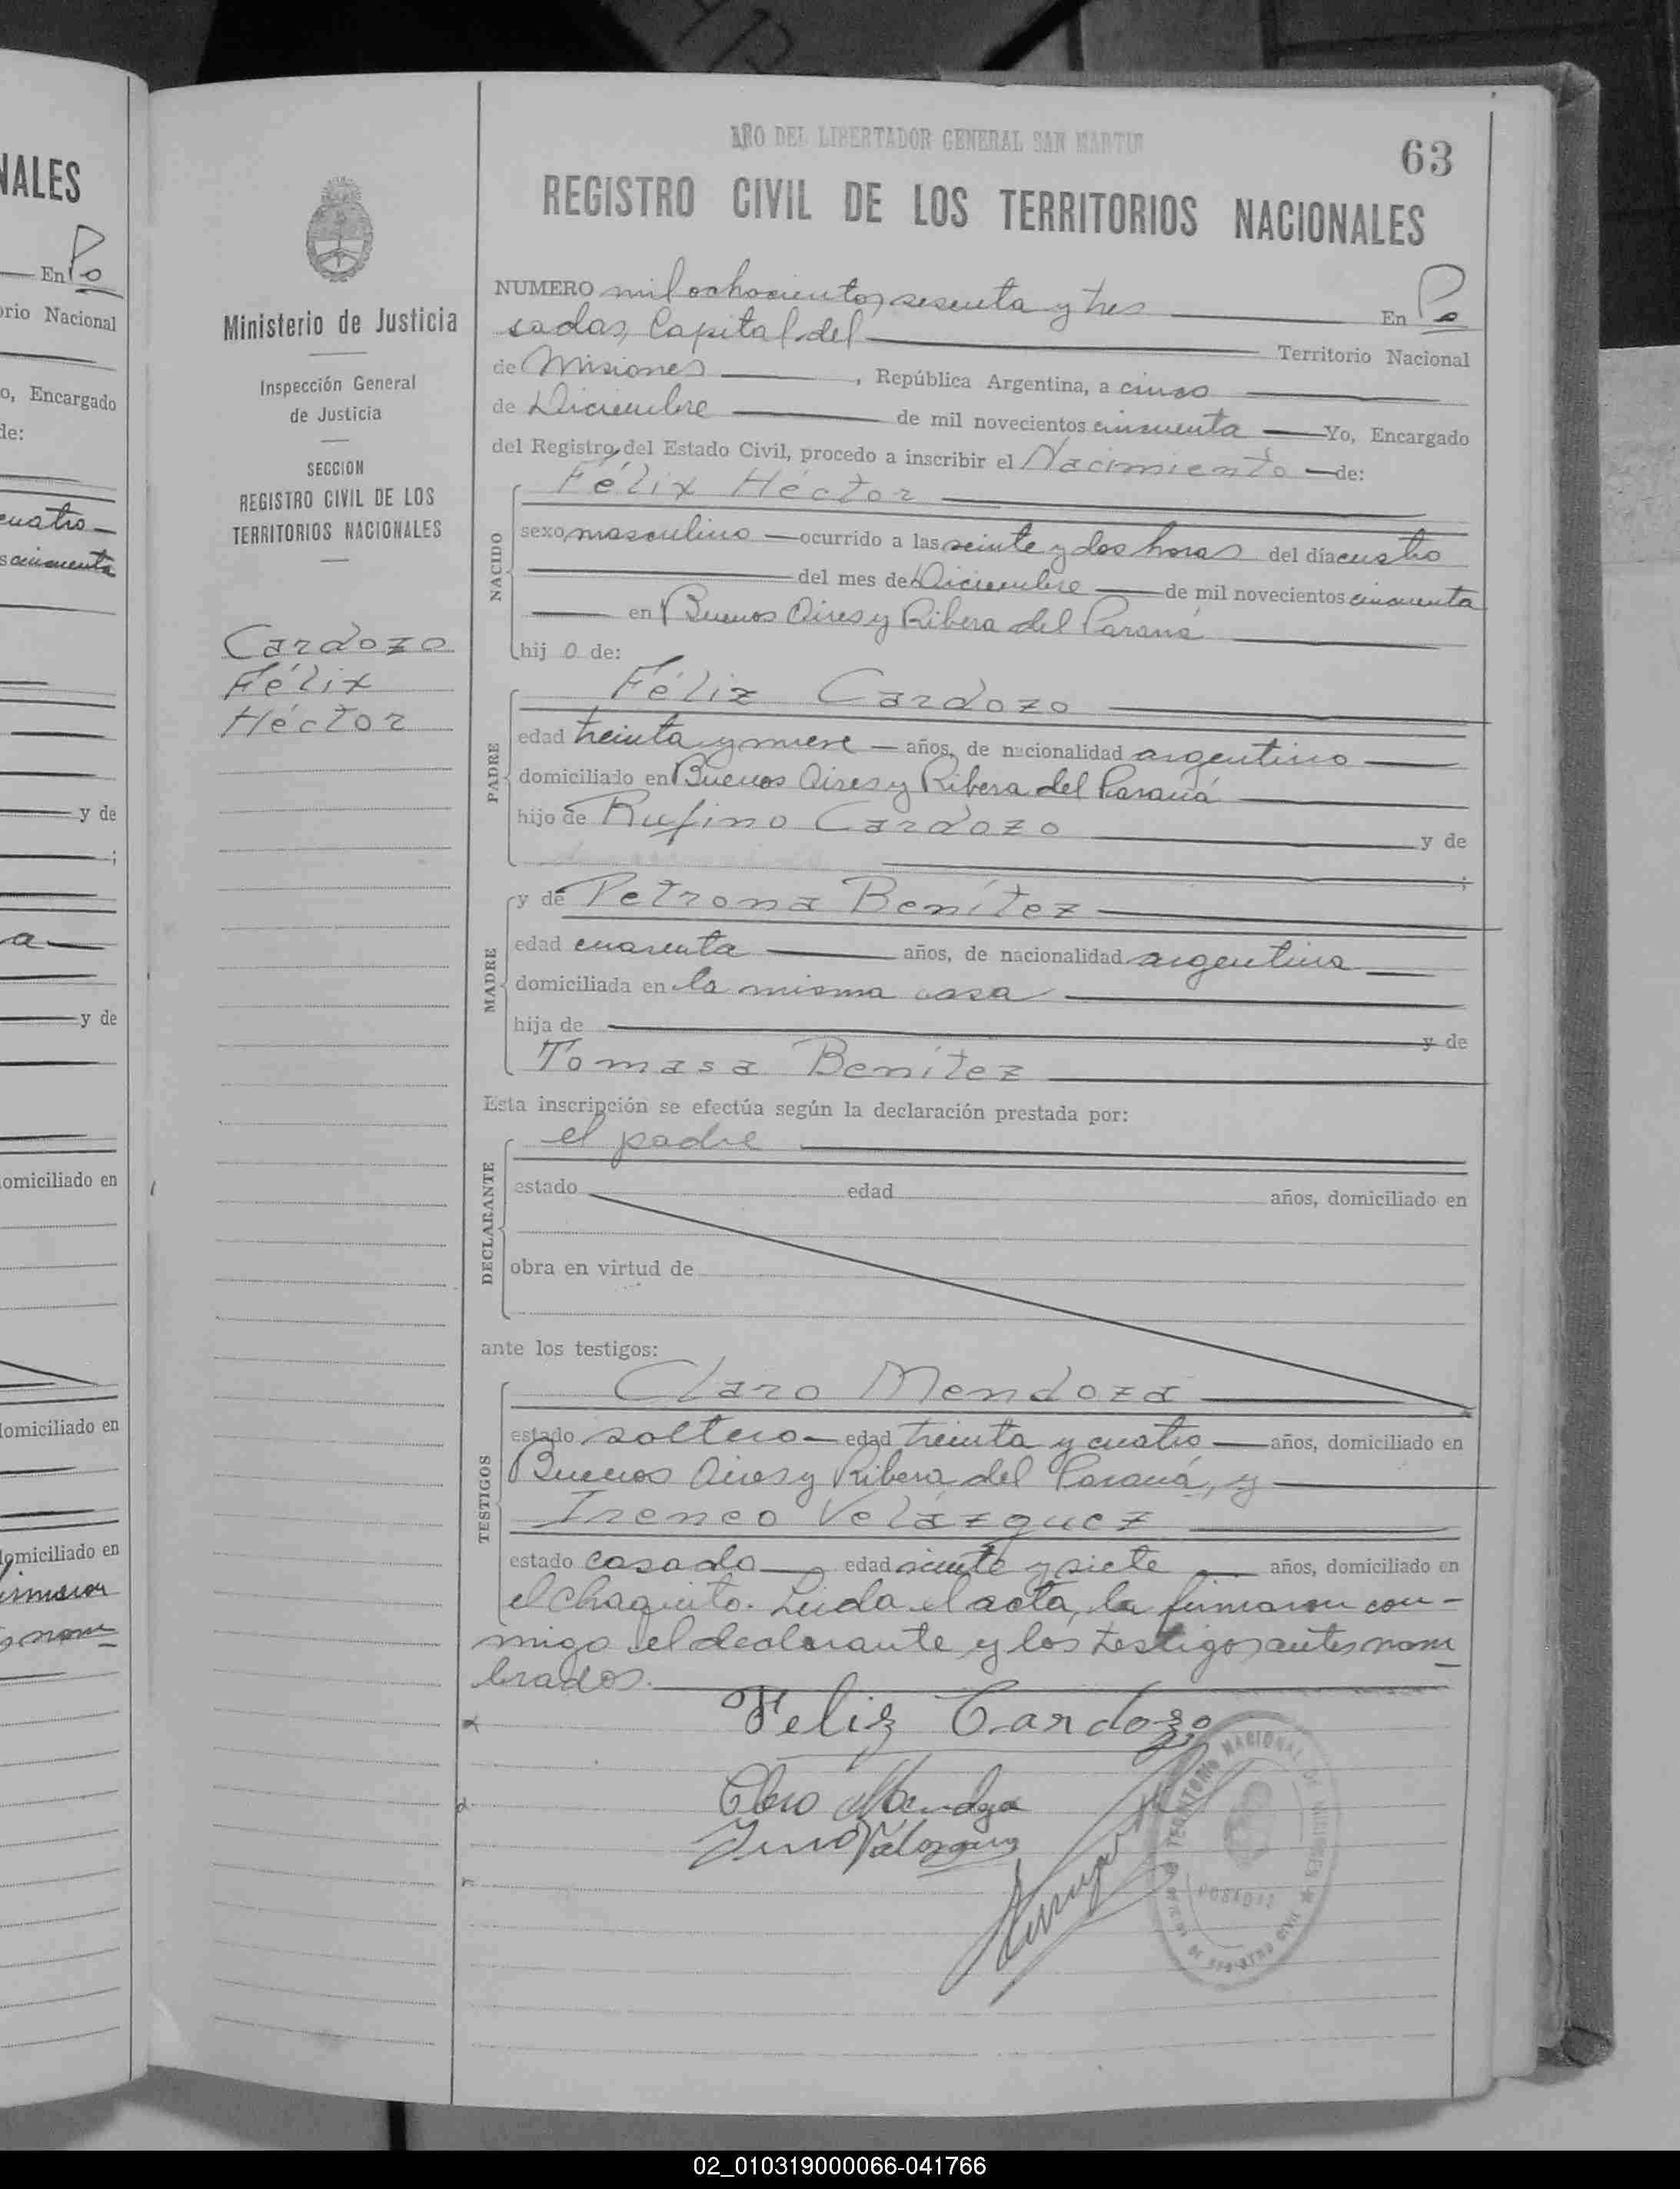 NALES
En Po
orio Nacional
o, Encargado
de:
cuatro
cincuenta
a
y de
y de
omiciliado en
domiciliado en
domiciliado en
firmaron
nom
Ministerio de Justicia
Inspección General
de Justicia
SECCION
REGISTRO CIVIL DE LOS
TERRITORIOS NACIONALES
Cardozo
Félix
Héctor
AÑO DEL LIBERTADOR GENERAL SAN MARTIN
63
REGISTRO CIVIL DE LOS TERRITORIOS NACIONALES
NUMERO mil ochocientos sesenta y tres En Po
sadas, Capital del Territorio Nacional
de Misiones, República Argentina, a cinco
de Diciembre de mil novecientos cincuenta Yo, Encargado
del Registro del Estado Civil, procedo a inscribir el Nacimiento de:
Félix Héctor
NACIDO
sexo masculino ocurrido a las veinte y dos horas del día cuatro
del mes de Diciembre de mil novecientos cincuenta
en Buenos Aires y Ribera del Paraná
hijo de:
Féliz Cardozo
PADRE
edad treinta y nueve años, de nacionalidad argentino
domiciliado en Buenos Aires y Ribera del Paraná
hijo de Rufino Cardozo y de
;
y de Petrona Benítez
MADRE
edad cuarenta años, de nacionalidad argentina
domiciliada en la misma casa
hija de y de
Tomasa Benítez
Esta inscripción se efectúa según la declaración prestada por:
el padre
DECLARANTE
estado edad años, domiciliado en
obra en virtud de
ante los testigos:
Claro Mendoza
TESTIGOS
estado soltero edad treinta y cuatro años, domiciliado en
Buenos Aires y Ribera del Paraná, y
Ireneo Velázquez
estado casado edad veinte y siete años, domiciliado en
el Chaquito. Leída el acta, la firmaron con-
migo el declarante y los testigos antes nom
brados.
Feliz Cardozo
Claro Mendoza
TERRITORIO NACIONAL DE MISIONES
POSADAS
02_010319000066-041766